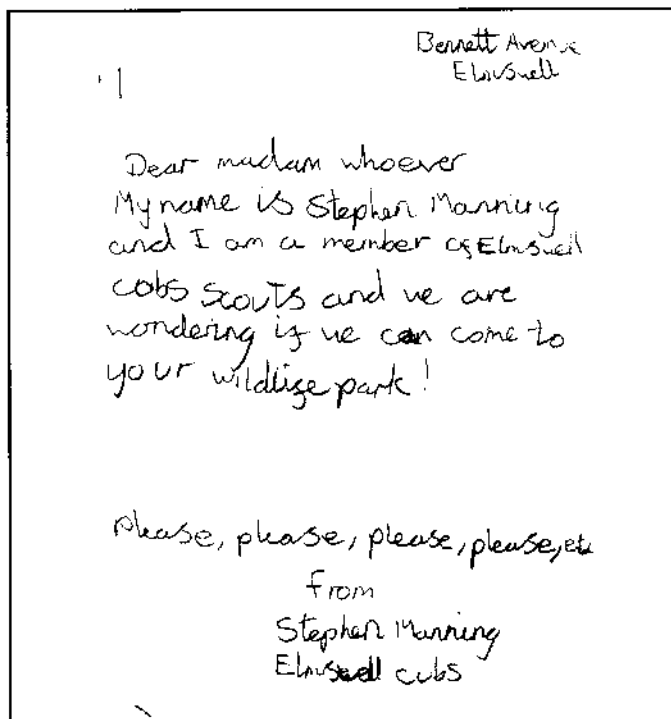 Bennett Avenue
Elmswell
Dear madam whoever
My name is Stephen Manning
and I am a member of Elmswell
cobs scouts and we are
wondering if we can come to
your wildlife park!
please, please, please, please, etc
from
Stephen Manning
Elmswell cubs